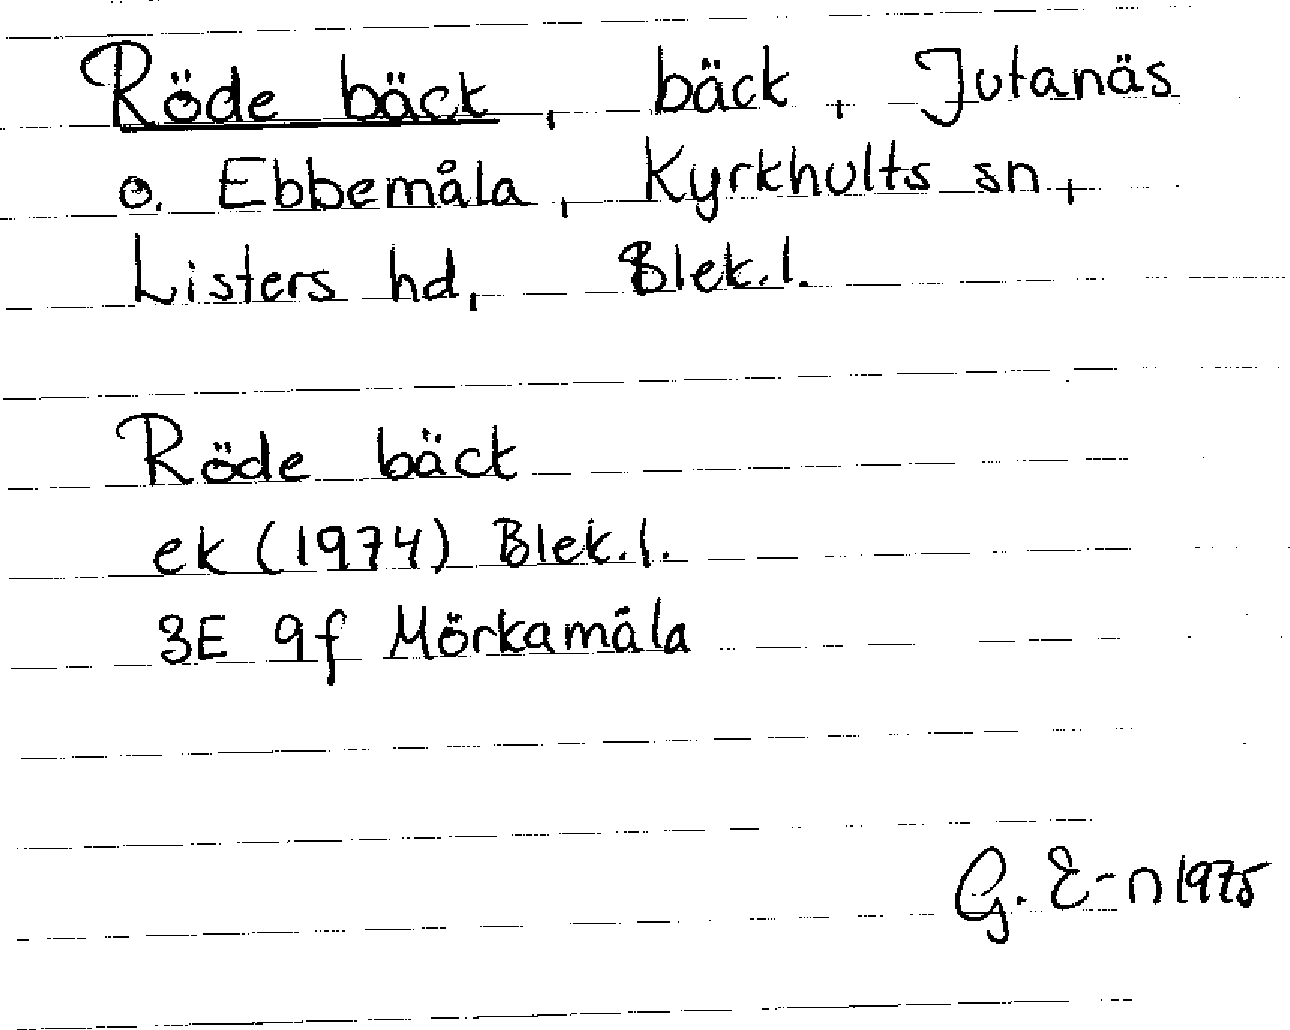 Röde bäck, bäck, Jutanäs
o. Ebbemåla, Kyrkhults sn,
Listers hd, Blek.l.
Röde bäck
ek (1974) Blek.l.
3E 9f Mörkamåla
G. E-n 1975